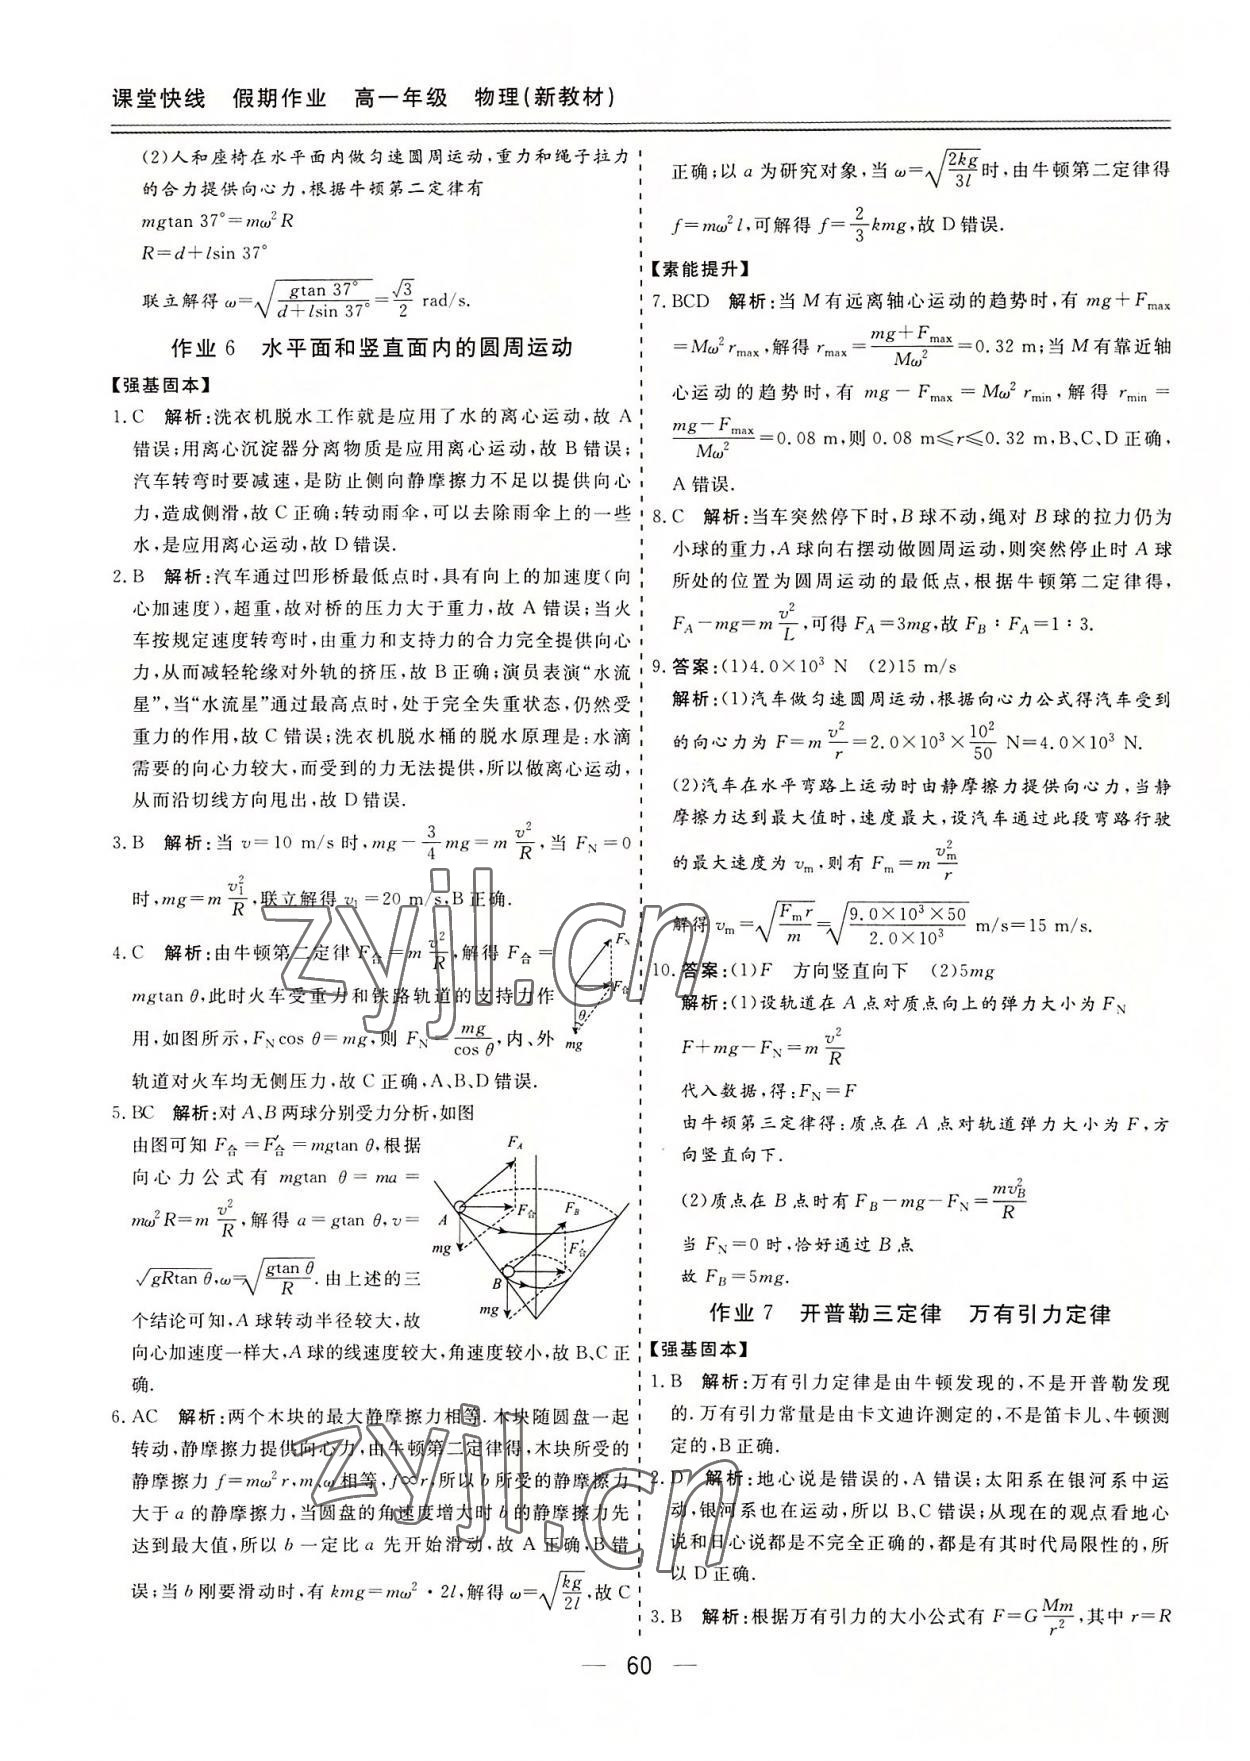 课堂快线 假期作业 高一年级 物理(新教材)
(2)人和座椅在水平面内做匀速圆周运动,重力和绳子拉力
的合力提供向心力,根据牛顿第二定律有
mgtan 37°=mω²R
R=d+lsin 37°
联立解得 ω=√(gtan 37°/(d+lsin 37°))=√3/2 rad/s.
作业 6 水平面和竖直面内的圆周运动
【强基固本】
1. C 解析:洗衣机脱水工作就是应用了水的离心运动,故 A
错误;用离心沉淀器分离物质是应用离心运动,故 B 错误;
汽车转弯时要减速,是防止侧向静摩擦力不足以提供向心
力,造成侧滑,故 C 正确;转动雨伞,可以去除雨伞上的一些
水,是应用离心运动,故 D 错误.
2. B 解析:汽车通过凹形桥最低点时,具有向上的加速度(向
心加速度),超重,故对桥的压力大于重力,故 A 错误;当火
车按规定速度转弯时,由重力和支持力的合力完全提供向心
力,从而减轻轮缘对外轨的挤压,故 B 正确;演员表演“水流
星”,当“水流星”通过最高点时,处于完全失重状态,仍然受
重力的作用,故 C 错误;洗衣机脱水桶的脱水原理是:水滴
需要的向心力较大,而受到的力无法提供,所以做离心运动,
从而沿切线方向甩出,故 D 错误.
3. B 解析:当 v=10 m/s 时,mg-3/4 mg=m v²/R,当 F_N=0
时,mg=m v₁²/R,联立解得 v₁=20 m/s,B 正确.
4. C 解析:由牛顿第二定律 F合=m v²/R,解得 F合=
mgtan θ,此时火车受重力和铁路轨道的支持力作
用,如图所示,F_N cos θ=mg,则 F_N=mg/cos θ,内、外
轨道对火车均无侧压力,故 C 正确,A、B、D 错误.
F_N
F合
θ
mg
5. BC 解析:对 A、B 两球分别受力分析,如图
由图可知 F合=F′合=mgtan θ,根据
向心力公式有 mgtan θ=ma=
mω²R=m v²/R,解得 a=gtan θ,v=
√(gRtan θ),ω=√(gtan θ/R).由上述的三
个结论可知,A 球转动半径较大,故
向心加速度一样大,A 球的线速度较大,角速度较小,故 B、C 正
确.
F_A
A
F合
F_B
mg
F′合
B
mg
6. AC 解析:两个木块的最大静摩擦力相等.木块随圆盘一起
转动,静摩擦力提供向心力,由牛顿第二定律得,木块所受的
静摩擦力 f=mω²r,m、ω 相等,f∝r,所以 b 所受的静摩擦力
大于 a 的静摩擦力,当圆盘的角速度增大时 b 的静摩擦力先
达到最大值,所以 b 一定比 a 先开始滑动,故 A 正确,B 错
误;当 b 刚要滑动时,有 kmg=mω²·2l,解得 ω=√(kg/2l),故 C
正确;以 a 为研究对象,当 ω=√(2kg/3l)时,由牛顿第二定律得
f=mω²l,可解得 f=2/3 kmg,故 D 错误.
【素能提升】
7. BCD 解析:当 M 有远离轴心运动的趋势时,有 mg+F_max
=Mω²r_max,解得 r_max=(mg+F_max)/Mω²=0.32 m;当 M 有靠近轴
心运动的趋势时,有 mg-F_max=Mω² r_min,解得 r_min=
(mg-F_max)/Mω²=0.08 m,则 0.08 m≤r≤0.32 m,B、C、D 正确,
A 错误.
8. C 解析:当车突然停下时,B 球不动,绳对 B 球的拉力仍为
小球的重力,A 球向右摆动做圆周运动,则突然停止时 A 球
所处的位置为圆周运动的最低点,根据牛顿第二定律得,
F_A-mg=m v²/L,可得 F_A=3mg,故 F_B∶F_A=1∶3.
9. 答案:(1)4.0×10³ N (2)15 m/s
解析:(1)汽车做匀速圆周运动,根据向心力公式得汽车受到
的向心力为 F=m v²/r=2.0×10³×10²/50 N=4.0×10³ N.
(2)汽车在水平弯路上运动时由静摩擦力提供向心力,当静
摩擦力达到最大值时,速度最大,设汽车通过此段弯路行驶
的最大速度为 v_m,则有 F_m=m v_m²/r
解得 v_m=√(F_m r/m)=√(9.0×10³×50/2.0×10³) m/s=15 m/s.
10. 答案:(1)F 方向竖直向下 (2)5mg
解析:(1)设轨道在 A 点对质点向上的弹力大小为 F_N
F+mg-F_N=m v²/R
代入数据,得:F_N=F
由牛顿第三定律得:质点在 A 点对轨道弹力大小为 F,方
向竖直向下.
(2)质点在 B 点时有 F_B-mg-F_N=mv_B²/R
当 F_N=0 时,恰好通过 B 点
故 F_B=5mg.
作业 7 开普勒三定律 万有引力定律
【强基固本】
1. B 解析:万有引力定律是由牛顿发现的,不是开普勒发现
的.万有引力常量是由卡文迪许测定的,不是笛卡儿、牛顿测
定的,B 正确.
2. D 解析:地心说是错误的,A 错误;太阳系在银河系中运
动,银河系也在运动,所以 B、C 错误;从现在的观点看地心
说和日心说都是不完全正确的,都是有其时代局限性的,所
以 D 正确.
3. B 解析:根据万有引力的大小公式有 F=G Mm/r²,其中 r=R
— 60 —
zyjl.cn
zyjl.cn